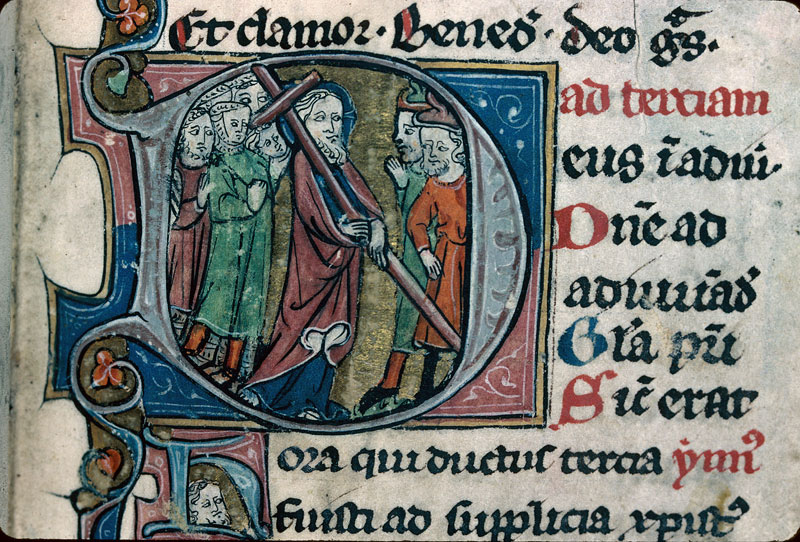 Et clamor. Bened̄. deo gᵃs.
ad terciam
Deus ī adiu.
Dn̄e ad
adiuuād
Gl'a pr̄i
Sic̄ erat
Hora qui ductus tercia ymn⁹
fuisti ad supplicia xpist⁹